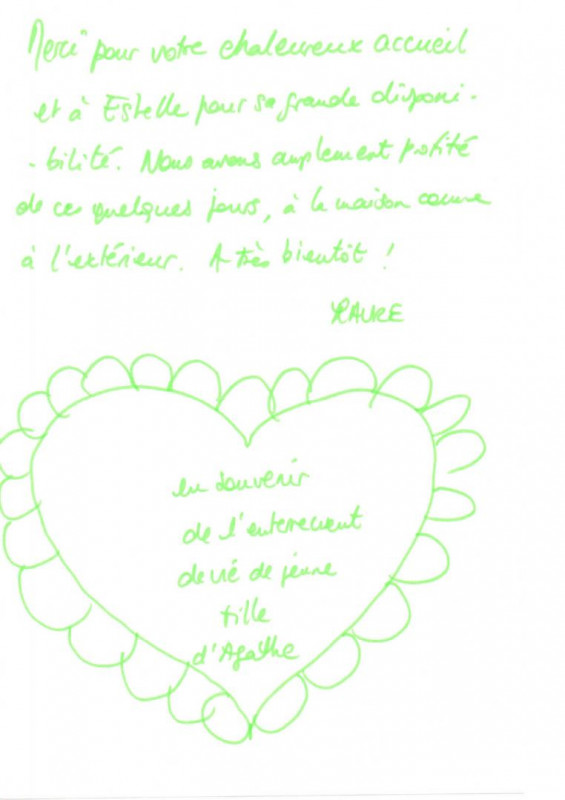 Merci pour votre chaleureux accueil
et à Estelle pour sa grande disponi-
-bilité. Nous avons amplement profité
de ces quelques jours, à la maison comme
à l'extérieur. A très bientôt !
LAURE
en souvenir
de l'enterrement
de vie de jeune
fille
d'Agathe